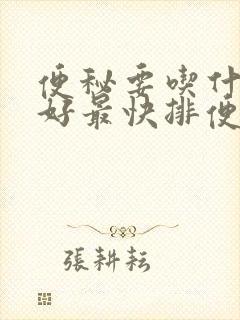 便秘要喫什
好最快排便
張耕耘